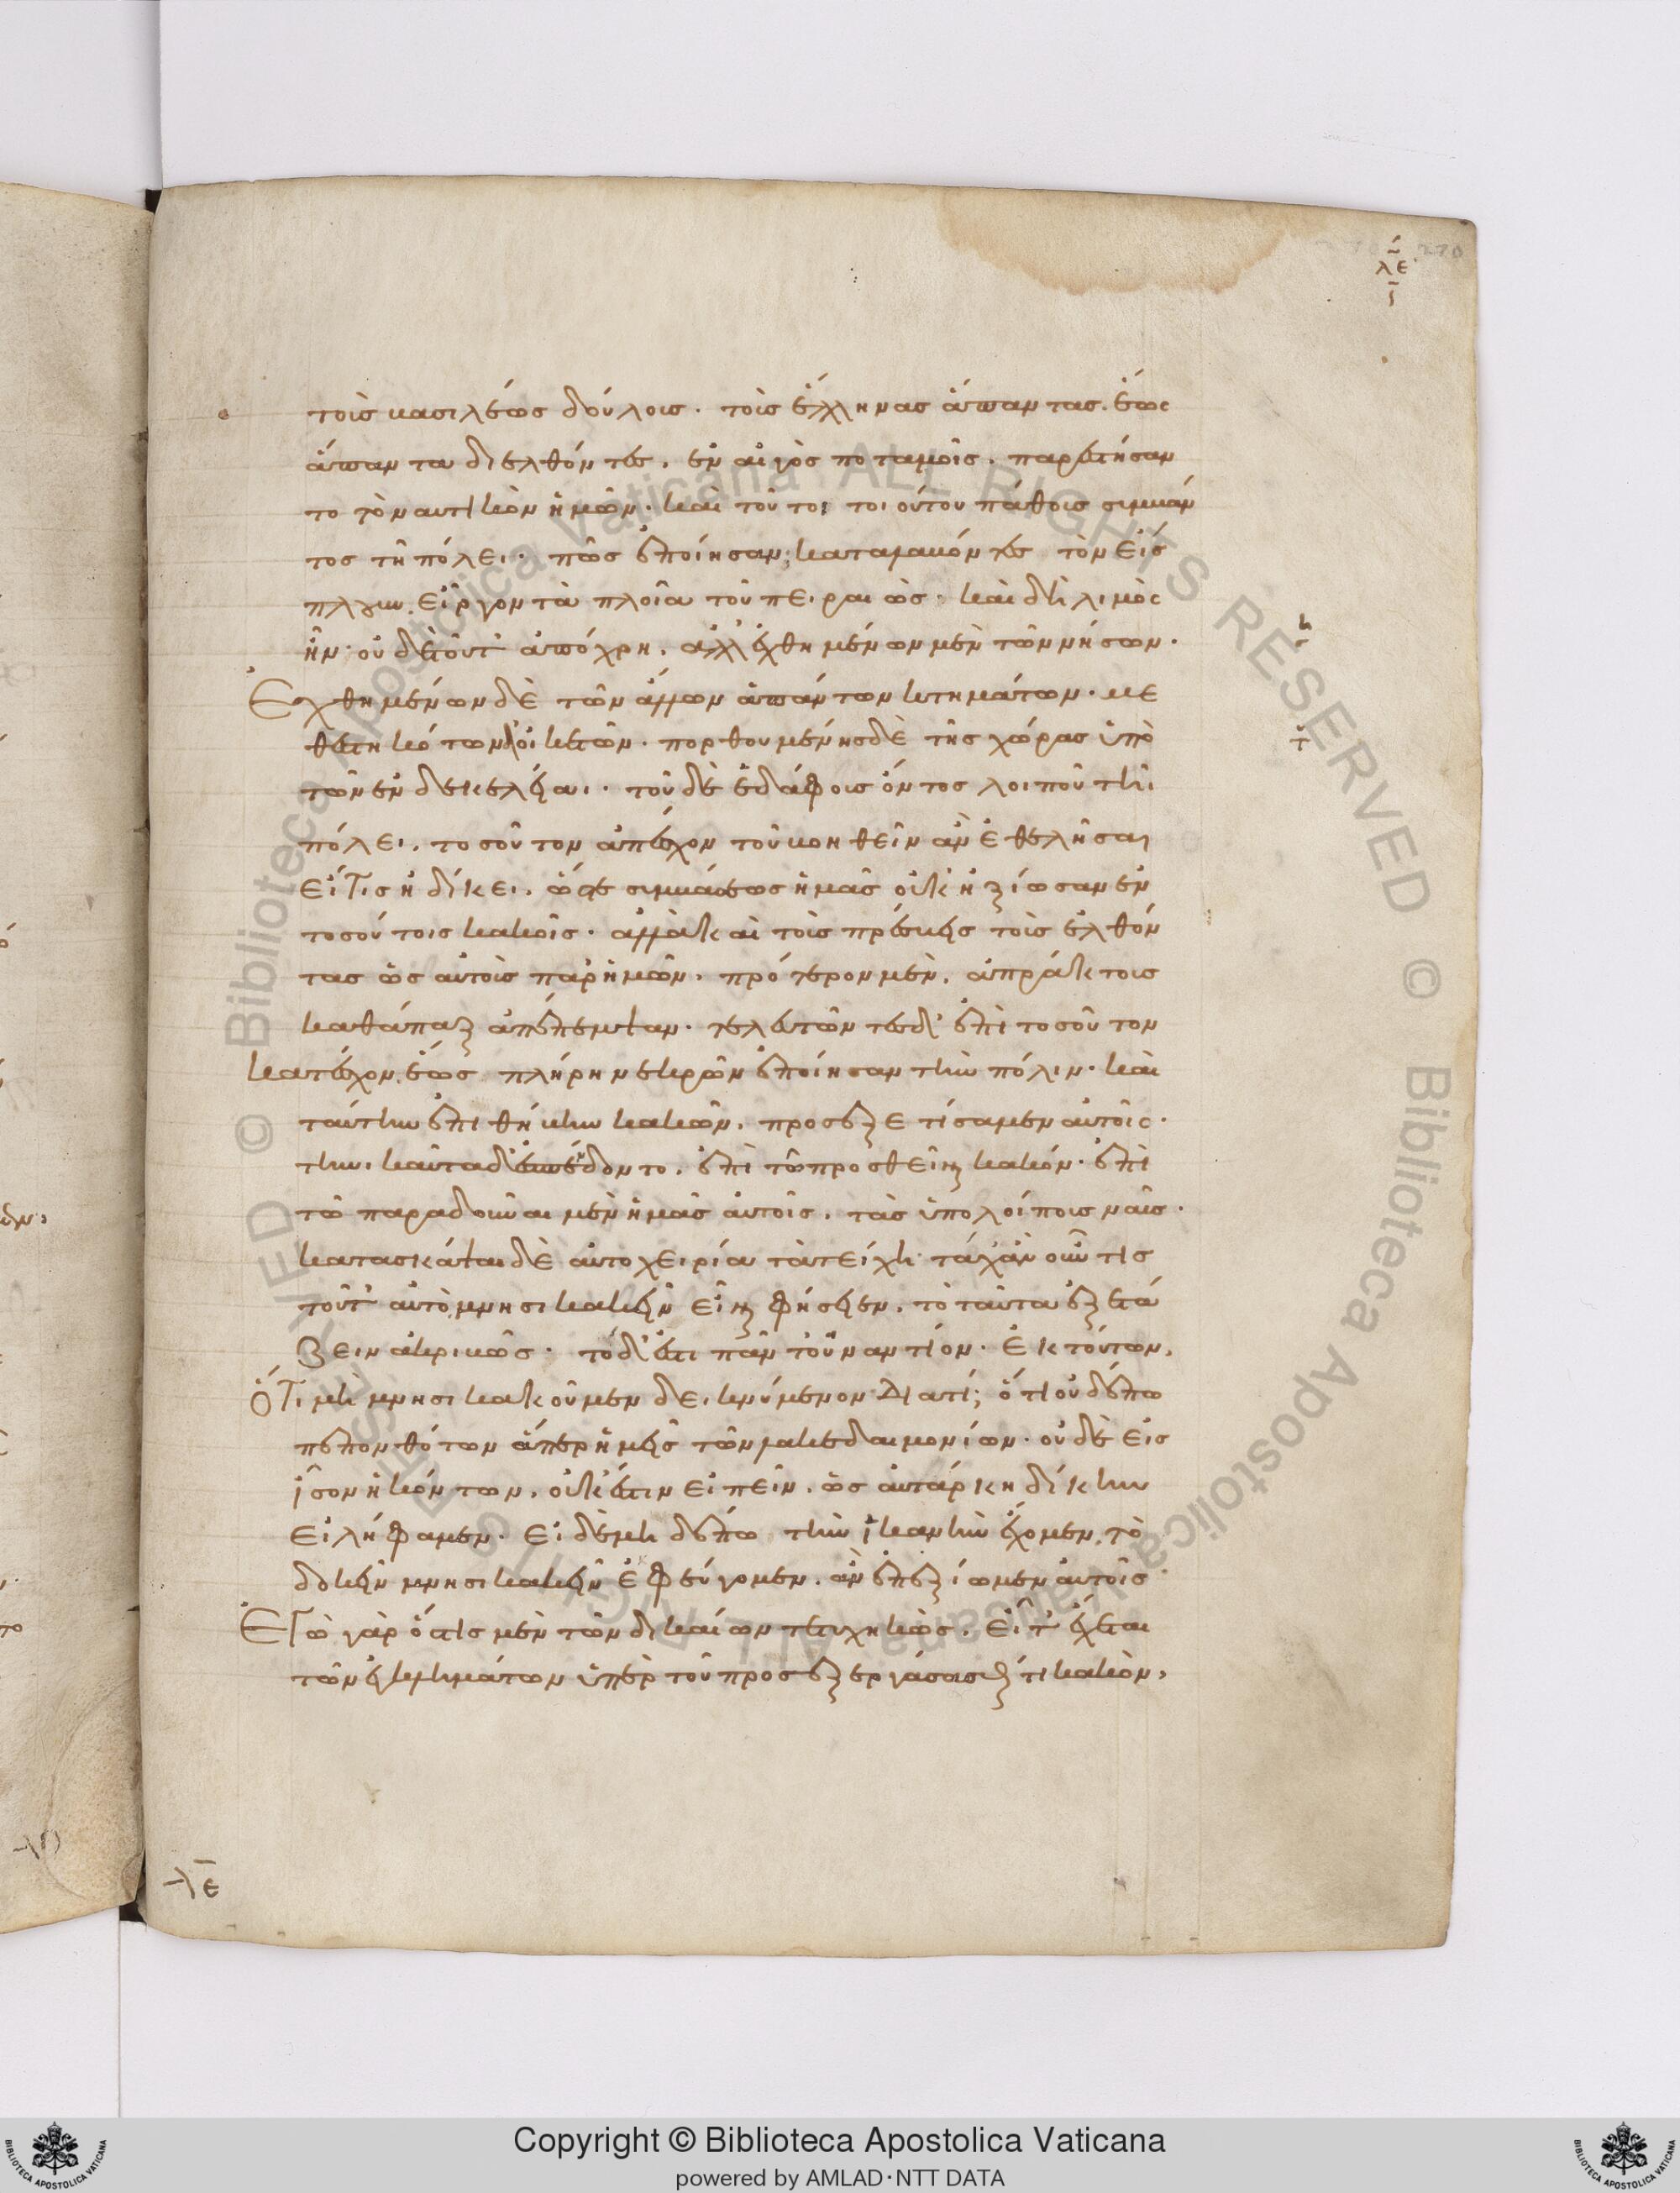 λε
τοῖς βασιλέως δούλοις. τοὺς ἕλληνας ἅπαντας. ἕως
ἅπαντα διελθόντες. ἐν αἰγὸς ποταμοῖς. παρεστήσαν
το τὸ ναυτικὸν ἡμῶν. καὶ τούτου τοιούτου πάθους συμβάν
τος τῇ πόλει. πῶς ἐποίησαν; καταλαβόντες τὸν εἴσ
πλουν. εἶργον τὰ πλοῖα τοῦ πειραιῶς. καὶ δὴ λιμὸς
ἦν. οὐδὲ τοῦτ' ἀπόχρη. ἀλλ' μὲν τῶν νήσων.
δὲ τῶν ἄλλων ἁπάντων κτημάτων. με
θεστηκότων δ' οἰκετῶν. πορθουμένης δὲ τῆς χώρας ὑπὸ
τῶν ἐν δεκελείαι. τοῦ δὲ ἐδάφους ὄντος λοιποῦ τῆι
πόλει. τοσοῦτον ἀπεῖχον τοῦ βοηθεῖν ἂν ἐθελῆσαι
εἴ τις ἠδίκει. ὥστε συμβάσεως ἡμᾶς οὐκ ἠξίωσαν ἐν
τοσούτοις κακοῖς. ἀλλὰ καὶ τοὺς πρέσβεις τοὺς ἐλθόν
τας ὡς αὐτοὺς παρ' ἡμῶν. πρότερον μὲν. ἀπράκτους
καθάπαξ ἀπέπεμψαν. τελευτῶντες δ' ἐπὶ τοσοῦτον
κατέσχον. ἕως πλήρη νεκρῶν ἐποίησαν τὴν πόλιν. καὶ
ταύτην ἐπιθήκην κακῶν. προσεξετίσαμεν αὐτοῖς.
καὶ ταῦτα δ' ἐσπένδοντο. ἐπὶ τῶ προσθεῖναι κακόν. ἐπὶ
τῶ παραδοῦναι μὲν ἡμᾶς αὐτοῖς. τὰς ὑπολοίπους ναῦς.
κατασκάψαι δὲ αὐτοχειρίαι τὰ τείχη. τάχ' ἂν οὖν τις
τοῦτ' αὐτὸ μνησικακεῖν εἶναι φήσειεν. τὸ ταῦτα ἐξετά
ζειν ἀκριβῶς. τὸ δ' ἔστι πᾶν τοὐναντίον. ἐκ τούτων.
ὅτι μὴ μνησικακοῦμεν δεικνύμενον. διατί; ὅτι οὐδέπω
πεπονθότων ἅπερ ἡμεῖς τῶν λακεδαιμονίων. οὐδὲ εἰς
ἴσον ἡκόντων. οὐκ ἔστιν εἰπεῖν. ὡς αὐτάρκη δίκην
εἰλήφαμεν. εἰ δὲ μὴ δέπω τὴν ἱκανὴν ἔχομεν. τὸ
δοκεῖν μνησικακεῖν ἐκφεύγομεν. ἂν ἐπεξίωμεν αὐτοῖς
ἐγὼ γὰρ ὅστις μὲν τῶν δικαίων τετυχηκὼς. εἶτ' ἔχεται
τῶν ἐγκλημάτων ὑπὲρ τοῦ προσεξεργάσασθαί τι κακὸν.
λε
Copyright © Biblioteca Apostolica Vaticana
powered by AMLAD·NTT DATA